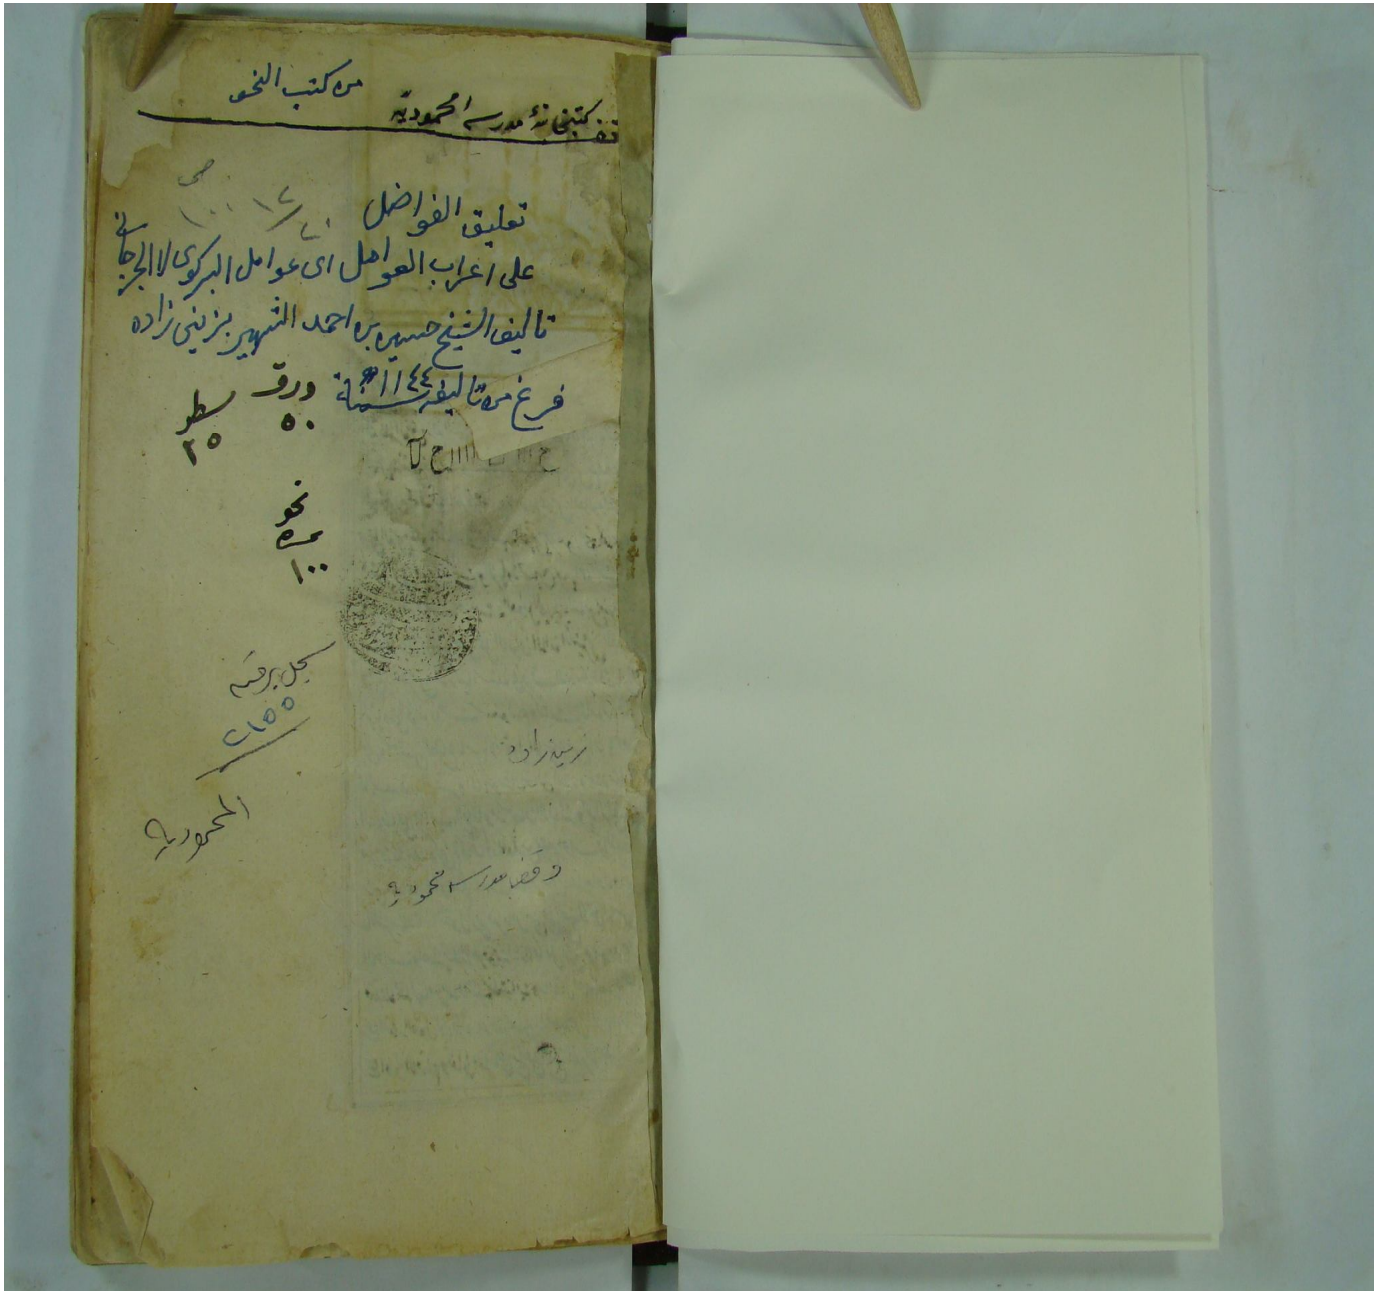 من كتب النحو
كتبخانهٔ مدرسه المحموديه
تعليق الفواضل
على اعراب العوامل اى عوامل البركوى لا الجرجانى
تاليف الشيخ حسين بن احمد الشهير بزينى زاده
فرغ من تاليفه سنة ١١٤٤
ورق
٥٠
سطر
٢٥
نحو
نمره
١٠٠
سجل برقم
٢١٥٥
المحموديه
زينى زاده
وقف مدرسه محموديه